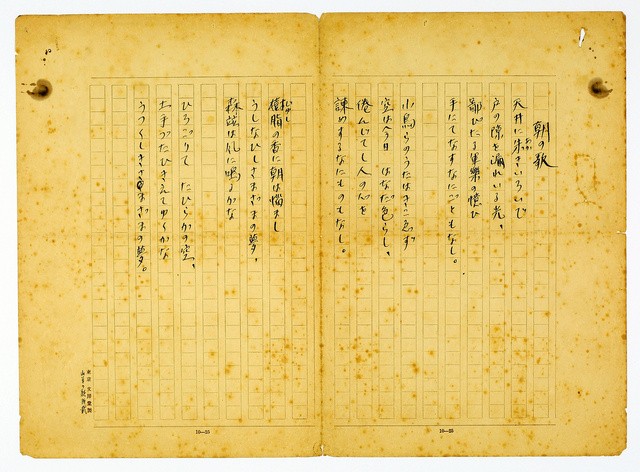 朝の歌
天井に 朱きいろいで
戸の隙を 洩れいる光、
鄙びたる 軍樂の憶ひ
手にてなす なにごともなし。
小鳥らの うたはきこえず
空は今日 はなだ色らし、
倦んじてし 人の心を
諫めする なにものもなし。
樹脂の香に 朝は惱まし
うしなひし さまざまの夢、
森竝は 風に鳴るかな
ひろごりて たひらかの空、
土手づたひ きえてゆくかな
うつくしき さまざまの夢。
10—25
10—25
東京 文房堂製